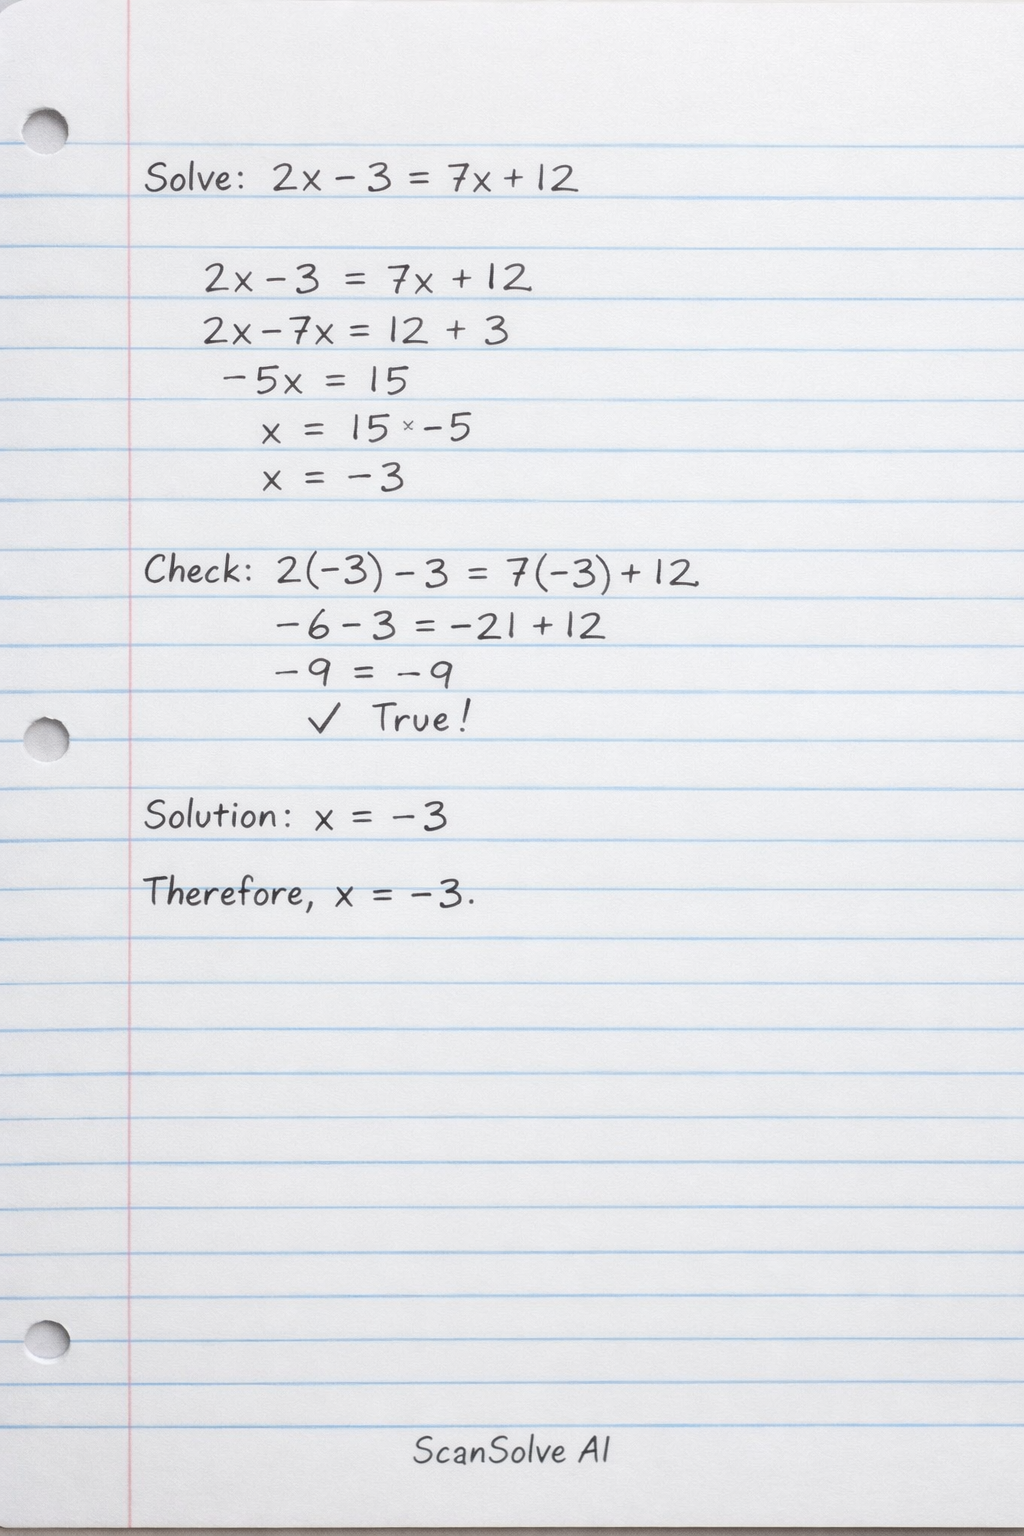 Solve: 2x - 3 = 7x + 12
2x - 3 = 7x + 12
2x - 7x = 12 + 3
-5x = 15
x = 15 × -5
x = -3
Check: 2(-3) - 3 = 7(-3) + 12
-6 - 3 = -21 + 12
-9 = -9
✓ True!
Solution: x = -3
Therefore, x = -3.
ScanSolve AI